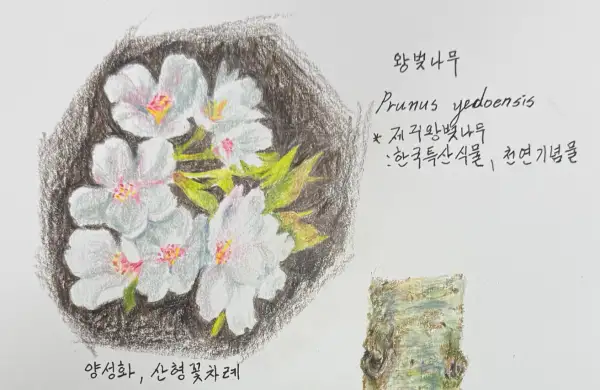 왕벚나무
Prunus yedoensis
* 제주왕벚나무
: 한국특산식물, 천연기념물
양성화, 산형꽃차례